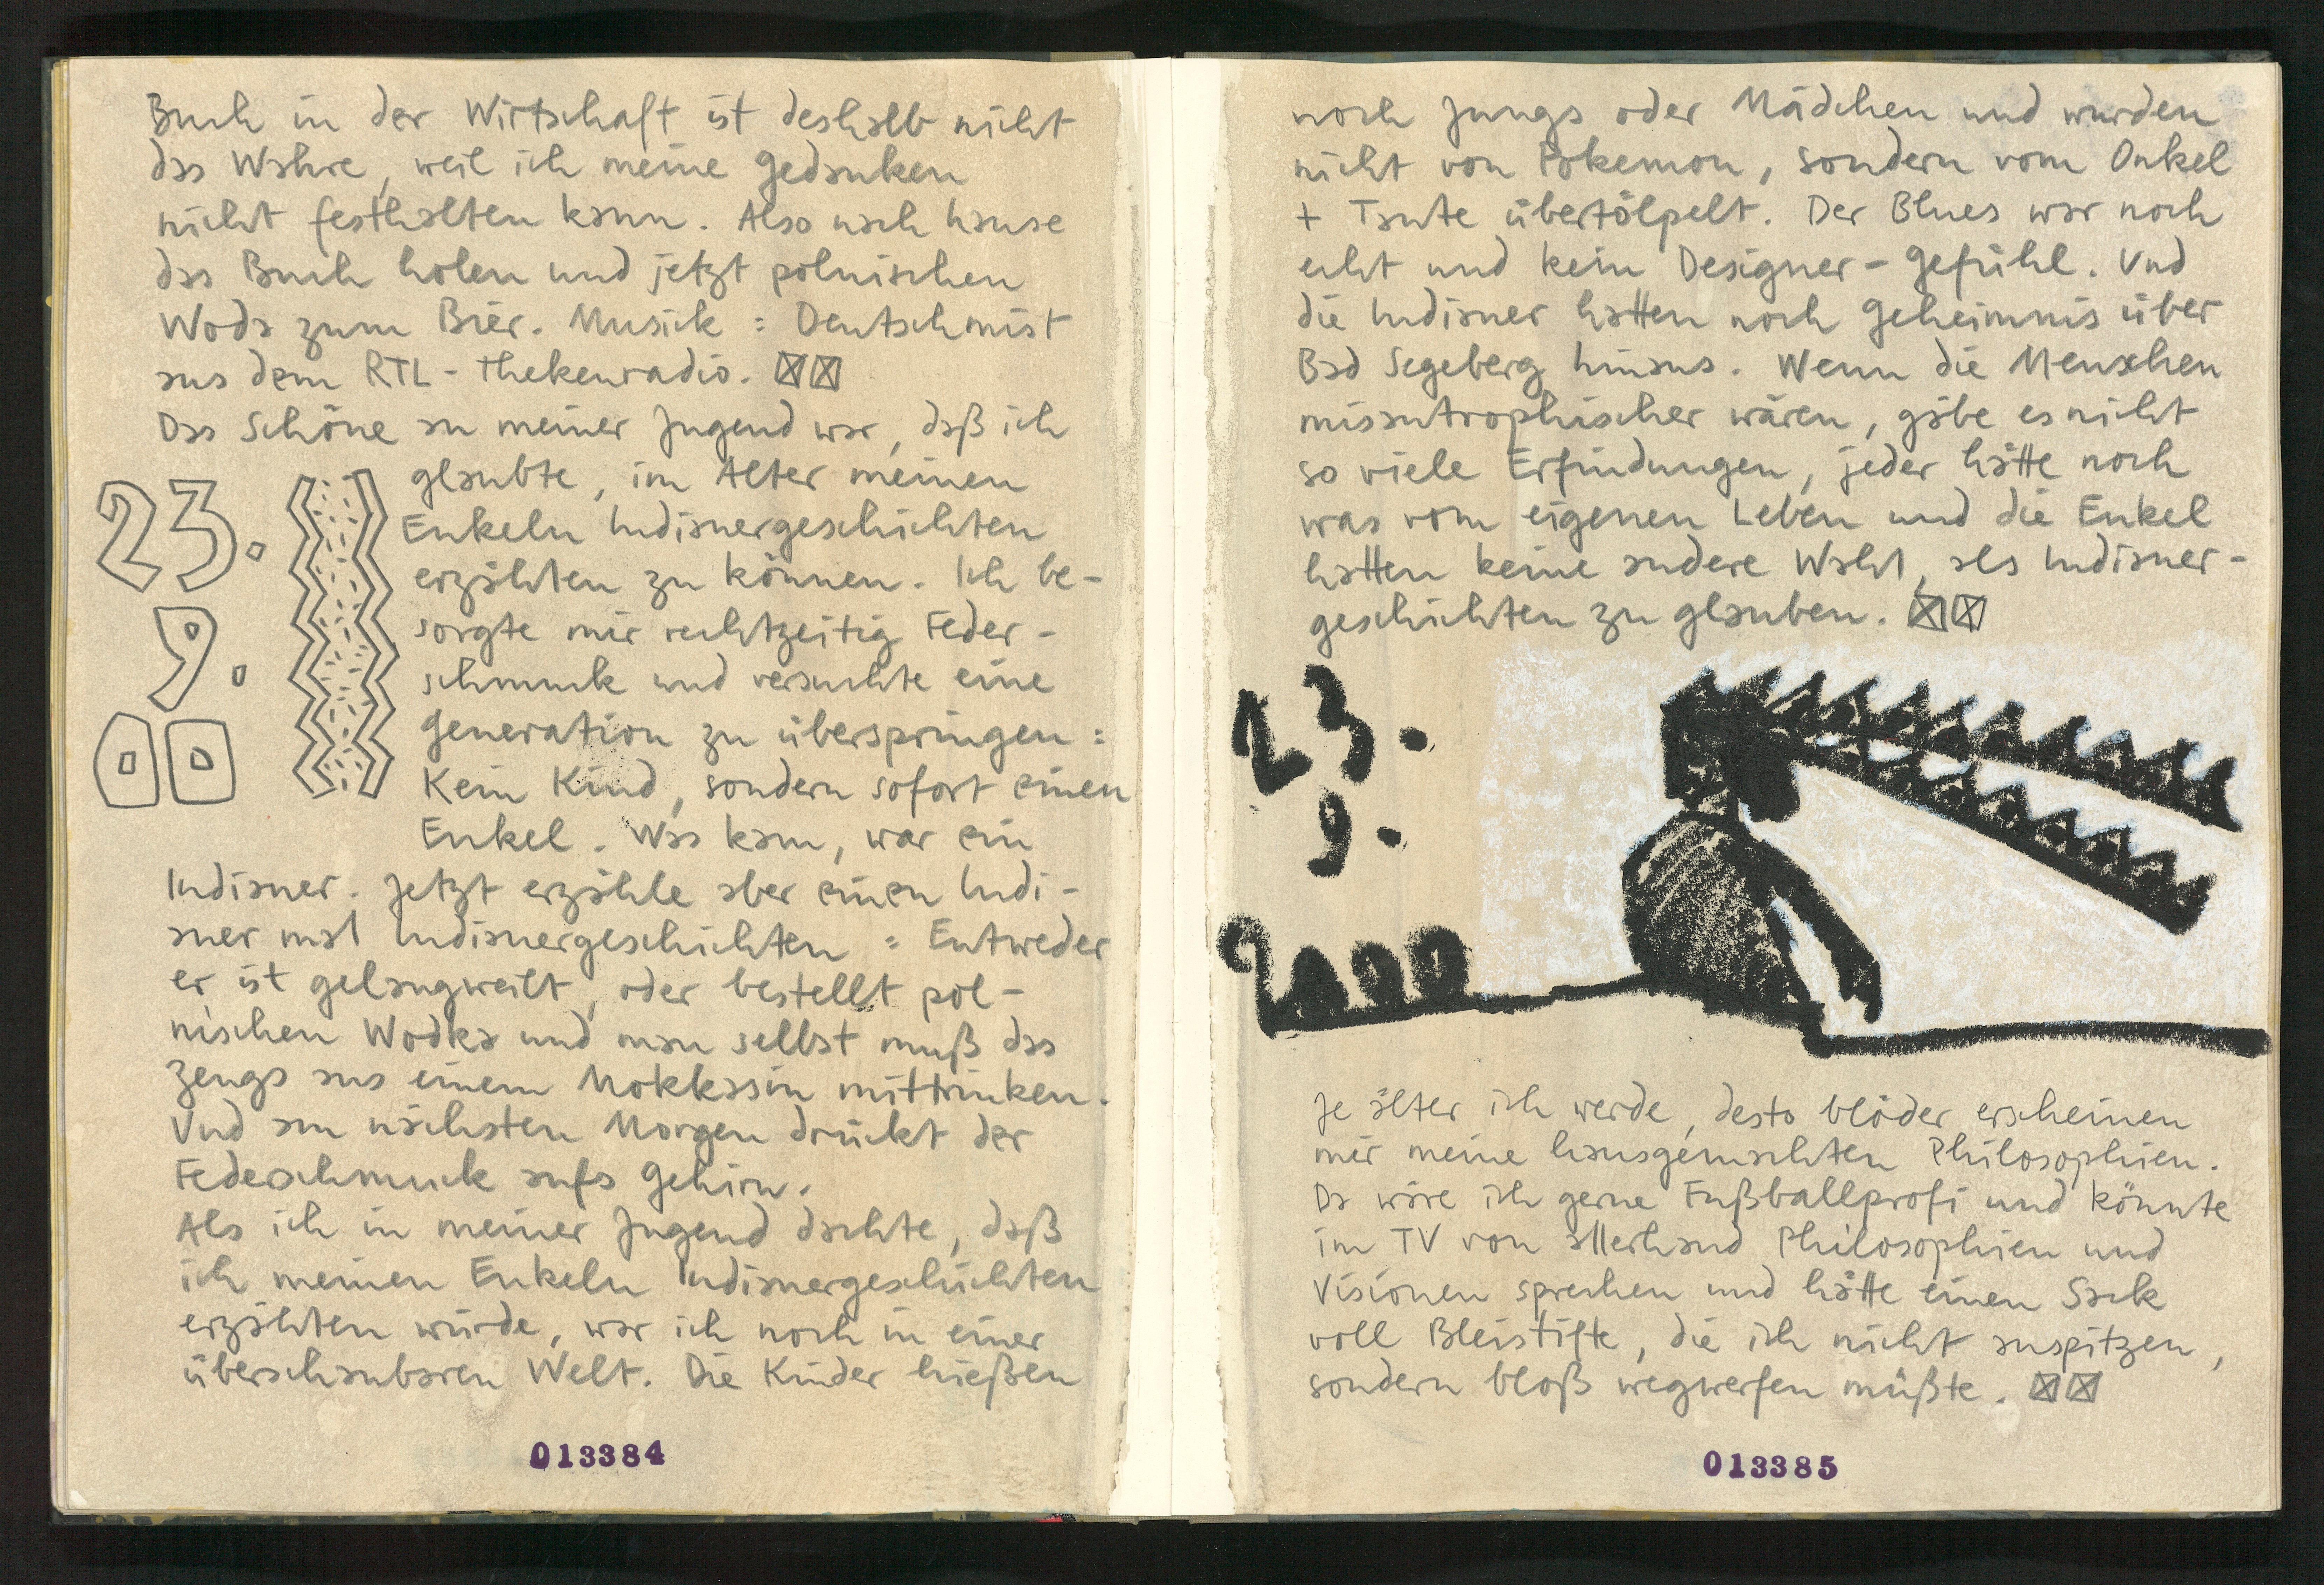 Buch in der Wirtschaft ist deshalb nicht
das Wahre, weil ich meine Gedanken
nicht festhalten kann. Also nach hause
das Buch holen und jetzt polnischen
Wods zum Bier. Musick = Deutschmist
aus dem RTL-Thekenradio.
Das Schöne an meiner Jugend war, daß ich
glaubte, im Alter meinen
Enkeln Indianergeschichten
erzählen zu können. Ich be-
sorgte mir rechtzeitig Feder-
schmuck und versuchte eine
Generation zu überspringen:
Kein Kind, sondern sofort einen
Enkel. Was kam, war ein
Indianer. Jetzt erzähle aber einen Indi-
aner mal Indianergeschichten = Entweder
er ist gelangweilt, oder bestellt pol-
nischen Wodka und man selbst muß das
Zeugs aus einem Mokkassin mittrinken.
Und am nächsten Morgen drückt der
Federschmuck aufs Gehirn.
Als ich in meiner Jugend dachte, daß
ich meinen Enkeln Indianergeschichten
erzählen würde, war ich noch in einer
überschaubaren Welt. Die Kinder hießen
23.
9.
00
013384
noch Jungs oder Mädchen und wurden
nicht von Pokemon, sondern vom Onkel
+ Tante übertölpelt. Der Blues war noch
echt und kein Designer-Gefühl. Und
die Indianer hatten noch Geheimnis über
Bad Segeberg hinaus. Wenn die Menschen
missantrophischer wären, gäbe es nicht
so viele Erfindungen, jeder hätte noch
was vom eigenen Leben und die Enkel
hatten keine andere Wahl, als Indianer-
geschichten zu glauben.
23.
9.
2000
Je älter ich werde, desto blöder erscheinen
mir meine hausgemachten Philosophien.
Da wäre ich gerne Fußballprofi und könnte
im TV von allerhand Philosophien und
Visionen sprechen und hätte einen Sack
voll Bleistifte, die ich nicht anspitzen,
sondern bloß wegwerfen müßte.
013385